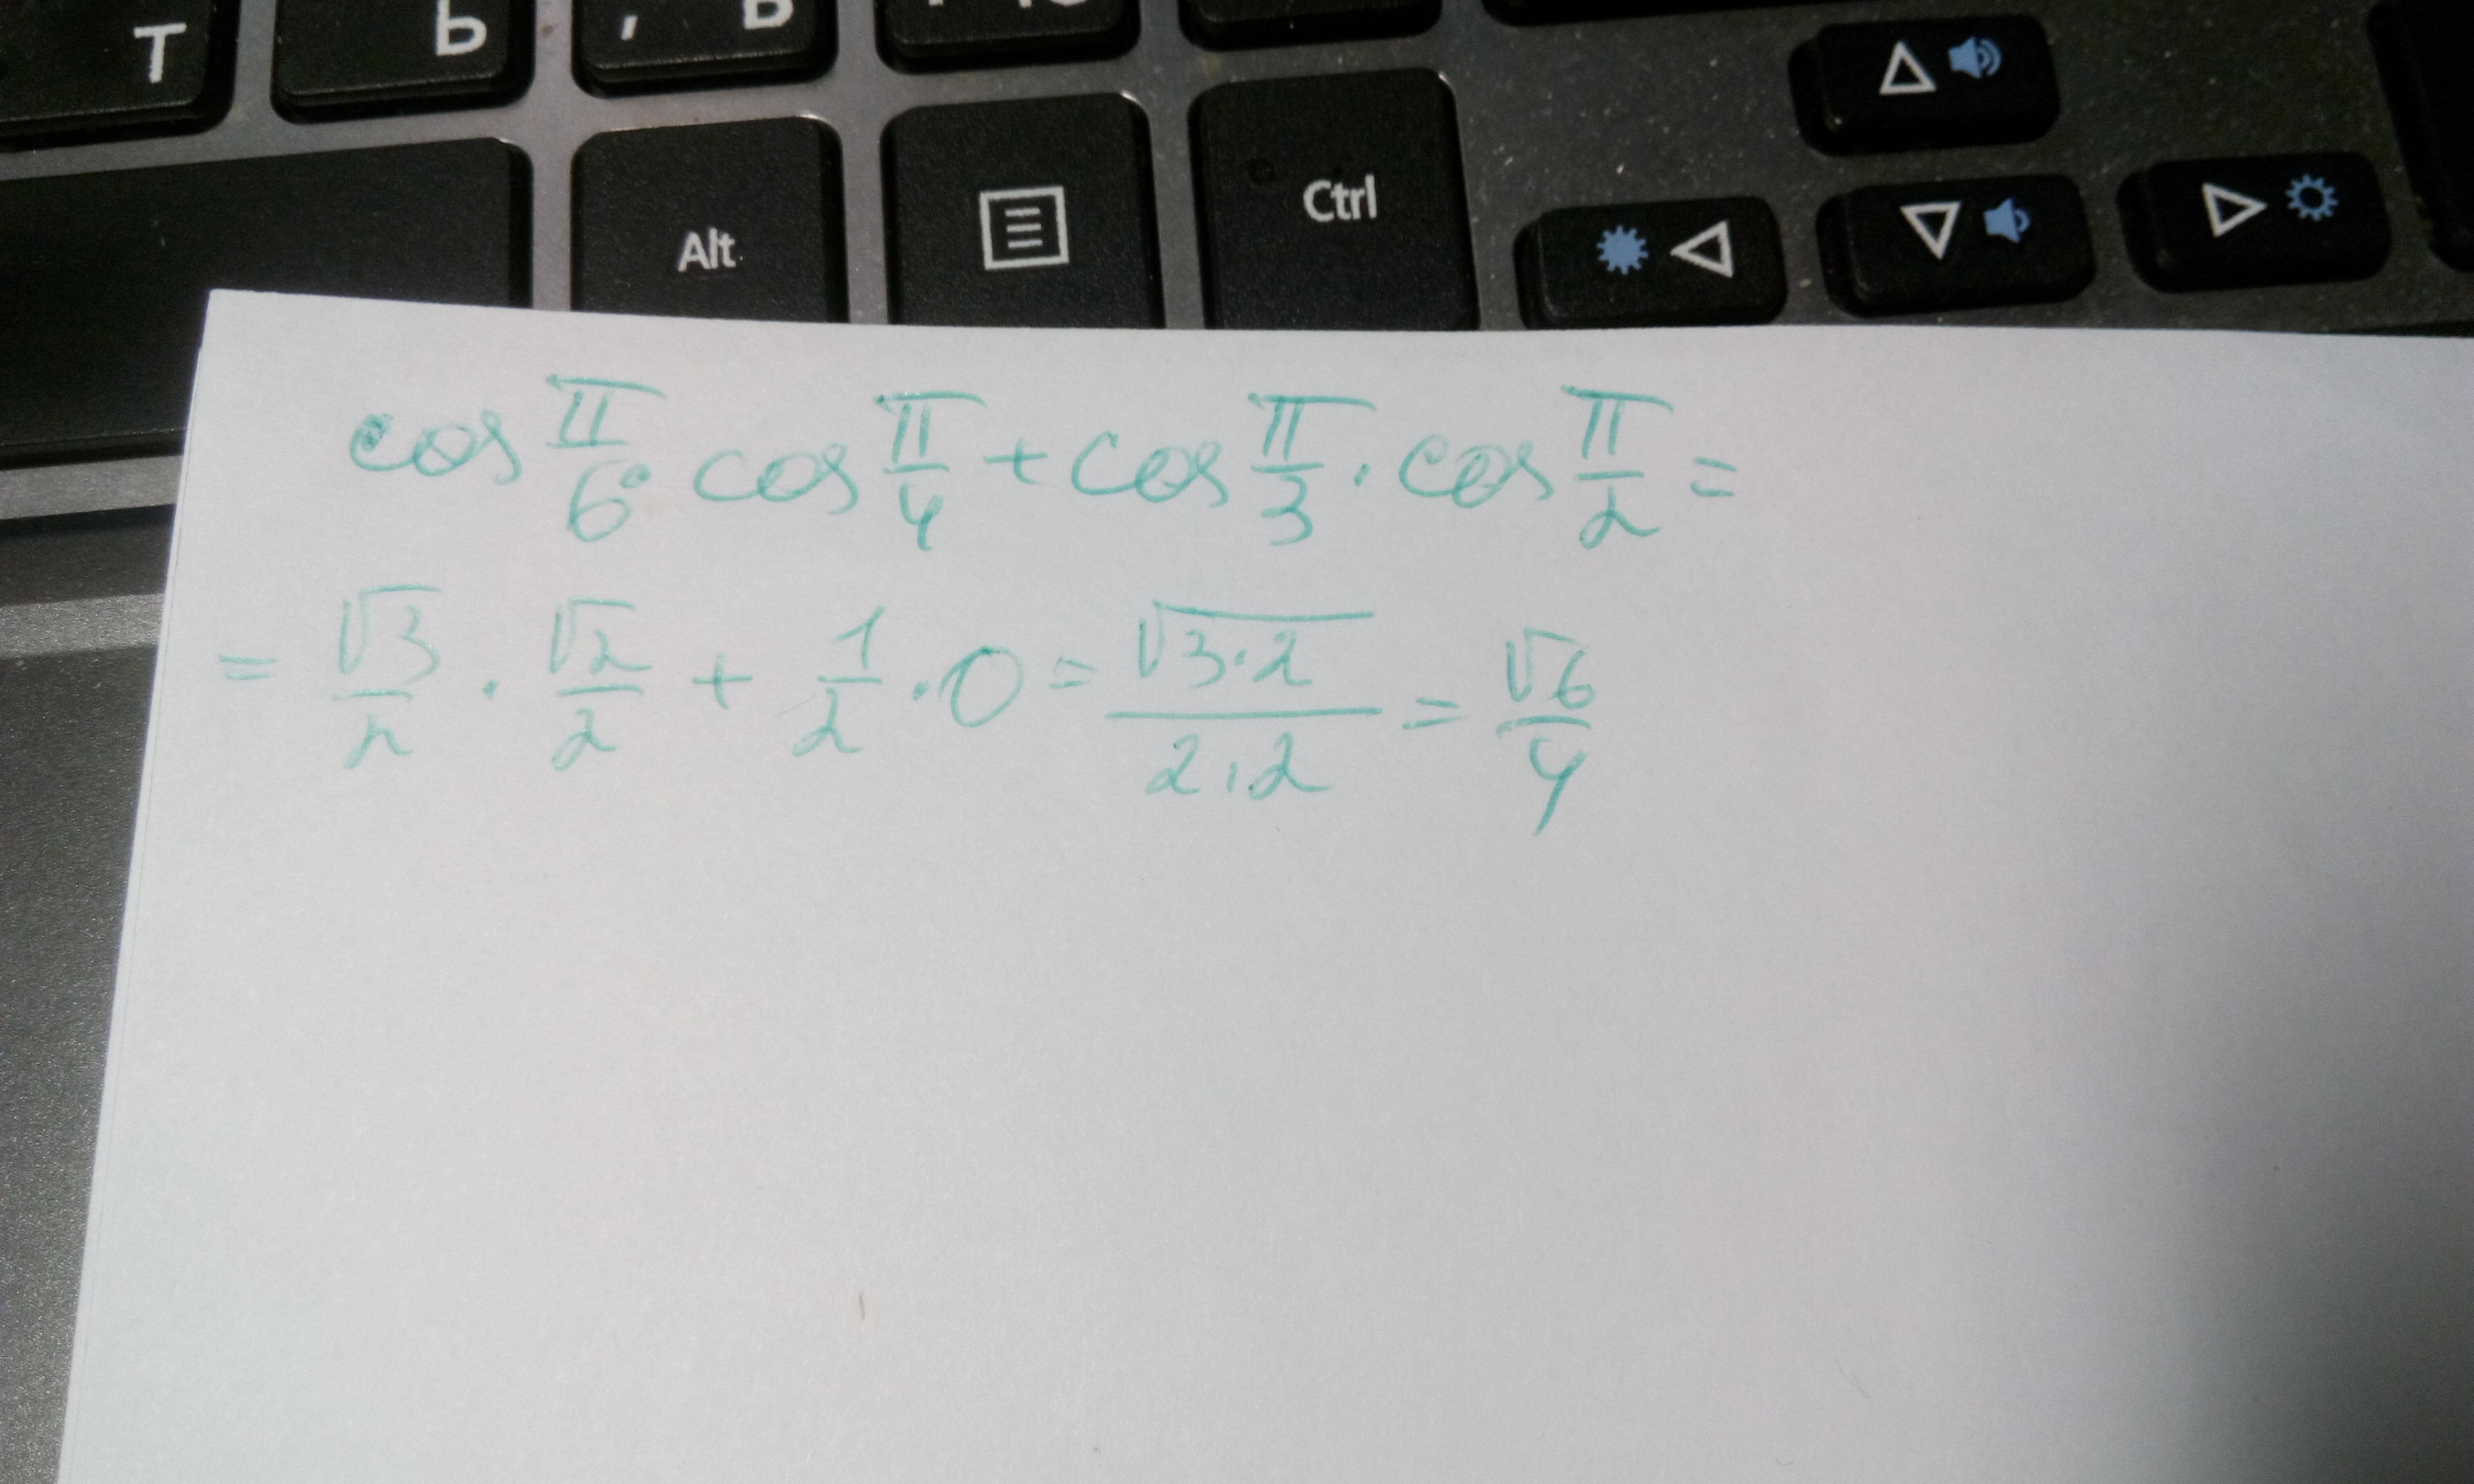 Т Ь , Б
Alt Ctrl
cos π/6 · cos π/4 + cos π/3 · cos π/2 =
= √3/2 · √2/2 + 1/2 · 0 = √3·2/2·2 = √6/4